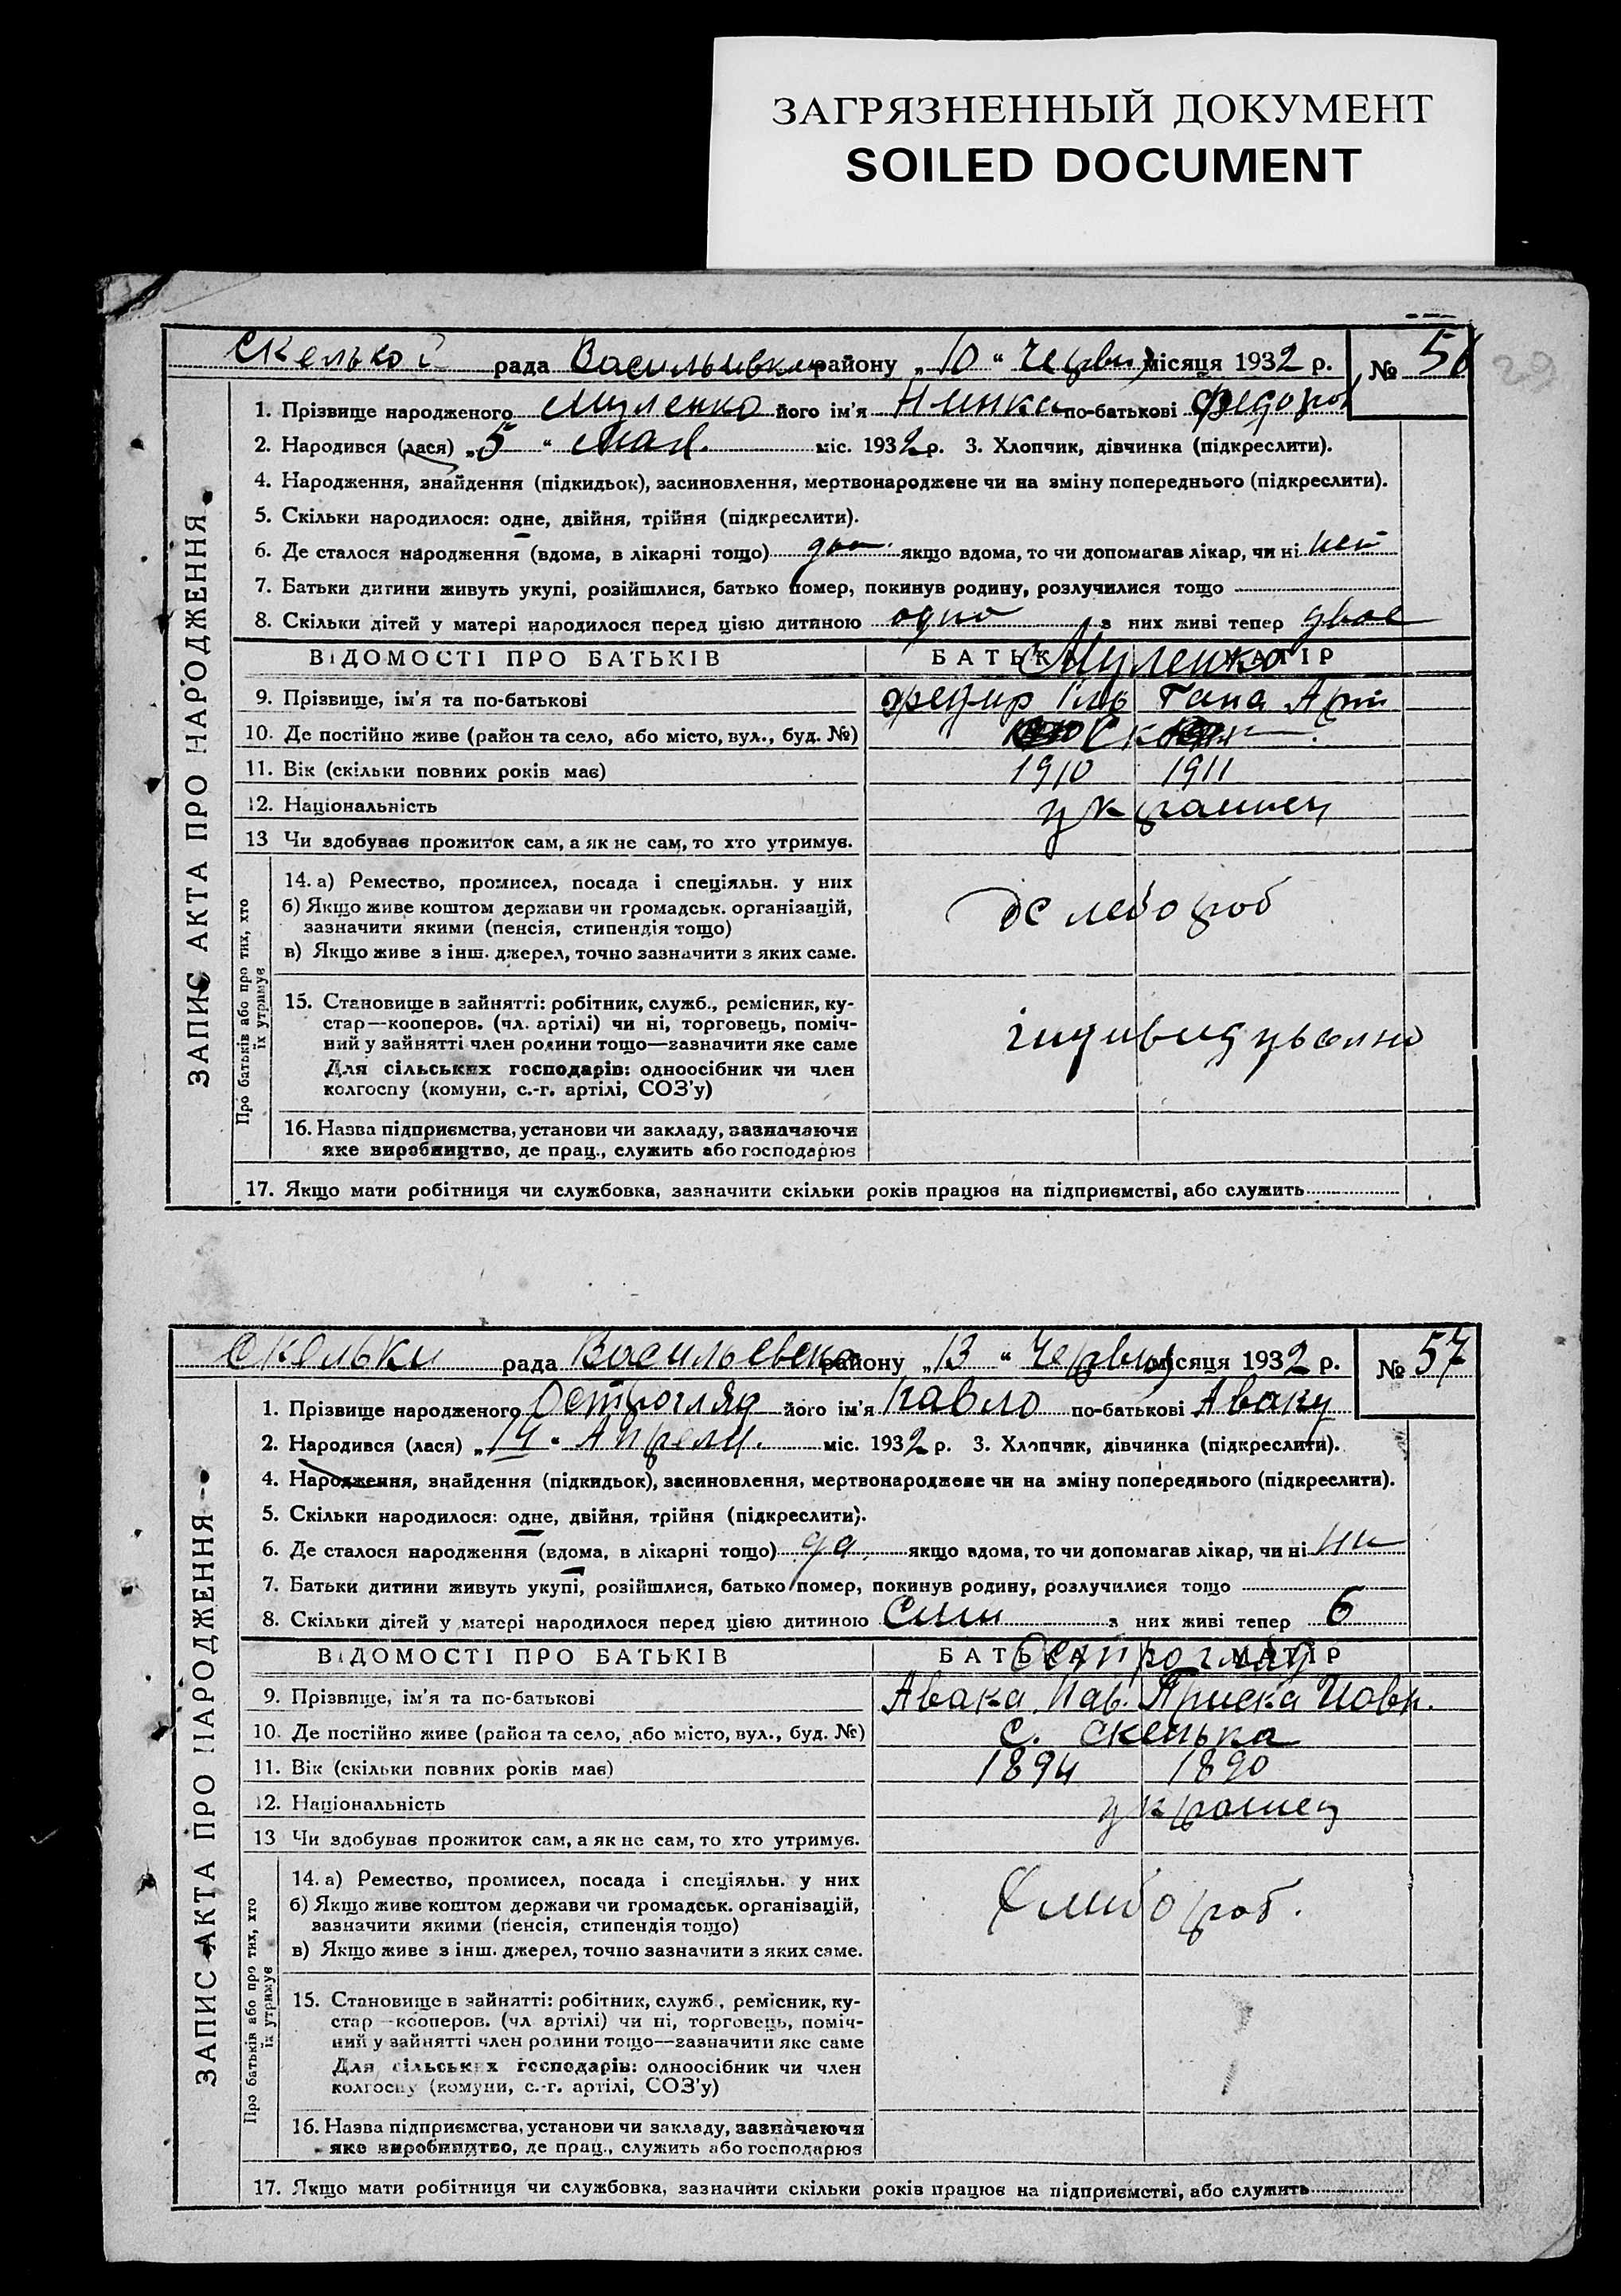 ЗАГРЯЗНЕННЫЙ ДОКУМЕНТ
SOILED DOCUMENT
29
ЗАПИС АКТА ПРО НАРОДЖЕННЯ
Скелької рада Васильевки району „10“ Червня місяця 1932 р. № 56
1. Прізвище народженого Муленко його ім'я Нинка по-батькові Федоров
2. Народився (лася) „5“ Мая міс. 1932 р. 3. Хлопчик, дівчинка (підкреслити).
4. Народження, знайдення (підкидьок), засиновлення, мертвонароджене чи на зміну попереднього (підкреслити).
5. Скільки народилося: одне, двійня, трійня (підкреслити).
6. Де сталося народження (вдома, в лікарні тощо) якщо вдома, то чи допомагав лікар, чи ні нет
7. Батьки дитини живуть укупі, розійшлися, батько помер, покинув родину, розлучилися тощо
8. Скільки дітей у матері народилося перед цією дитиною одно з них живі тепер двое
ВІДОМОСТІ ПРО БАТЬКІВ БАТЬКА МАТІР
Муленко
9. Прізвище, ім'я та по-батькові Федир Іль Гана Арт
10. Де постійно живе (район та село, або місто, вул., буд. №)
11. Вік (скільки повних років має) 1910 1911
12. Національність украинец
13 Чи здобуває прожиток сам, а як не сам, то хто утримує.
Про батьків або про тих, хто
їх утримує
14. а) Ремество, промисел, посада і спеціяльн. у них
б) Якщо живе коштом держави чи громадськ. організацій,
зазначити якими (пенсія, стипендія тощо)
хлебороб
в) Якщо живе з інш. джерел, точно зазначити з яких саме.
15. Становище в зайнятті: робітник, служб., ремісник, ку-
стар—кооперов. (чл. артілі) чи ні, торговець, поміч-
ний у зайнятті член родини тощо—зазначити яке саме
індивидуально
Для сільських господарів: одноосібник чи член
колгоспу (комуни, с.-г. артілі, СОЗ'у)
16. Назва підприємства, установи чи закладу, зазначаючи
яке виробництво, де прац., служить або господарює
17. Якщо мати робітниця чи службовка, зазначити скільки років працює на підприємстві, або служить
ЗАПИС АКТА ПРО НАРОДЖЕННЯ
Скельки рада Васильевско району „13“ Червня місяця 1932 р. № 57
1. Прізвище народженого Острогляд його ім'я Павло по-батькові Аваку
2. Народився (лася) „14“ Апреля міс. 1932 р. 3. Хлопчик, дівчинка (підкреслити).
4. Народження, знайдення (підкидьок), засиновлення, мертвонароджене чи на зміну попереднього (підкреслити).
5. Скільки народилося: одне, двійня, трійня (підкреслити).
6. Де сталося народження (вдома, в лікарні тощо) да якщо вдома, то чи допомагав лікар, чи ні ни
7. Батьки дитини живуть укупі, розійшлися, батько помер, покинув родину, розлучилися тощо
8. Скільки дітей у матері народилося перед цією дитиною Сим з них живі тепер 6
ВІДОМОСТІ ПРО БАТЬКІВ БАТЬКА МАТІР
Острогляд
9. Прізвище, ім'я та по-батькові Авака Пав. Приска Иовн.
10. Де постійно живе (район та село, або місто, вул., буд. №) с. Скелька
11. Вік (скільки повних років має) 1894 1890
12. Національність украинец
13 Чи здобуває прожиток сам, а як не сам, то хто утримує.
Про батьків або про тих, хто
їх утримує
14. а) Ремество, промисел, посада і спеціяльн. у них
б) Якщо живе коштом держави чи громадськ. організацій,
зазначити якими (пенсія, стипендія тощо)
хлибороб.
в) Якщо живе з інш. джерел, точно зазначити з яких саме.
15. Становище в зайнятті: робітник, служб., ремісник, ку-
стар—кооперов. (чл. артілі) чи ні, торговець, поміч-
ний у зайнятті член родини тощо—зазначити яке саме
Для сільських господарів: одноосібник чи член
колгоспу (комуни, с.-г. артілі, СОЗ'у)
16. Назва підприємства, установи чи закладу, зазначаючи
яке виробництво, де прац., служить або господарює
17. Якщо мати робітниця чи службовка, зазначити скільки років працює на підприємстві, або служить